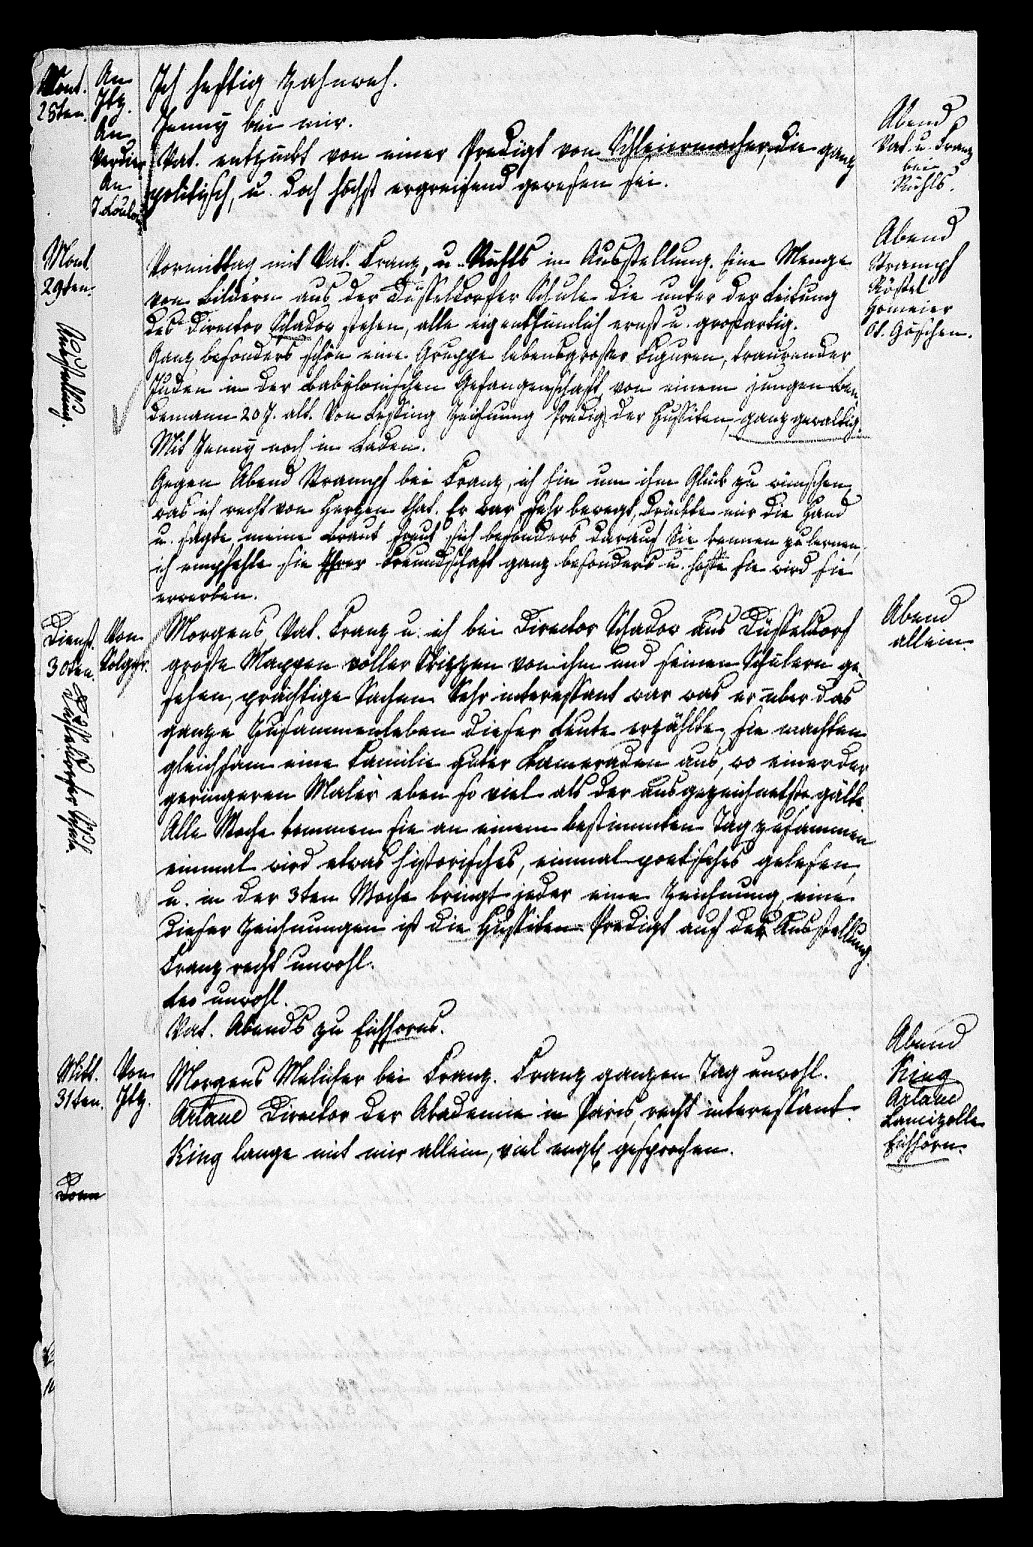 28ten.
An
Itz.
An
Verdier
An
Ich heftig Zahnweh.
Jenny bei mir.
Vat. entzückt von einer Predigt von Schleiermacher, die ganz
politisch, u. doch höchst ergreifend gewesen sei.
Abend
Vat. u. Franz
bei
Rühls.
Mont.
29ten.
Ausstellung.
Vormittag mit Vat. Franz, u. Rühls in Ausstellung. Eine Menge
von Bildern aus der Düsseldorfer Schule die unter der Leitung
des Director Schadow stehen, alle eigenthümlich ernst u. großartig.
Ganz besonders schön eine Gruppe lebensgroßer Figuren, trauernder
Juden in der babylonischen Gefangenschaft von einem jungen Ben,
demann 20 J. alt. Von Lessing Zeichnung Predigt der Hussiten, ganz gewaltig.
Mit Jenny noch im Laden.
Gegen Abend Strampf bei Franz, ich hin um ihm Glück zu wünschen,
was ich recht von Herzen that. Er war sehr bewegt, drückte mir die Hand
u. sagte, meine Braut freut sich besonders darauf Sie kennen zu lernen,
ich empfehle sie Ihrer Freundschaft ganz besonders u. hoffe sie wird sie
erwerben.
Abend
Strampf
Rößel
Homeier
Ol. Göschen.
Dienst.
30ten.
Von
Morgens Vat. Franz u. ich bei Director Schadow aus Düsseldorf
große Mappen voller Skizzen von ihm und seinen Schülern ge,
sehen, prächtige Sachen. Sehr interessant war was er über das
ganze Zusammenleben dieser Leute erzählte, sie machten
gleichsam eine Familie guter Kameraden aus, wo einer der
geringeren Maler eben so viel als der ausgezeichnetste gälte.
Alle Woche kommen sie an einem bestimmten Tag zusammen
einmal wird etwas historisches, einmal poetisches gelesen,
u. in der 3ten Woche bringt jeder eine Zeichnung, eine
dieser Zeichnungen ist die Hussiten-Predigt auf der Ausstellung.
Franz recht unwohl.
Leo unwohl.
Vat. Abends zu Eichhorns.
Abend
allein.
Düsseldorfer Schule.
Mitt.
31ten.
Von
Itz.
Morgens Melicher bei Franz. Franz ganzen Tag unwohl.
Artaud Director der Akademie in Paris, recht interessant.
King lange mit mir allein, viel engl. gesprochen.
Abend
King
Artaud
Lancizolle
Eichhorn.